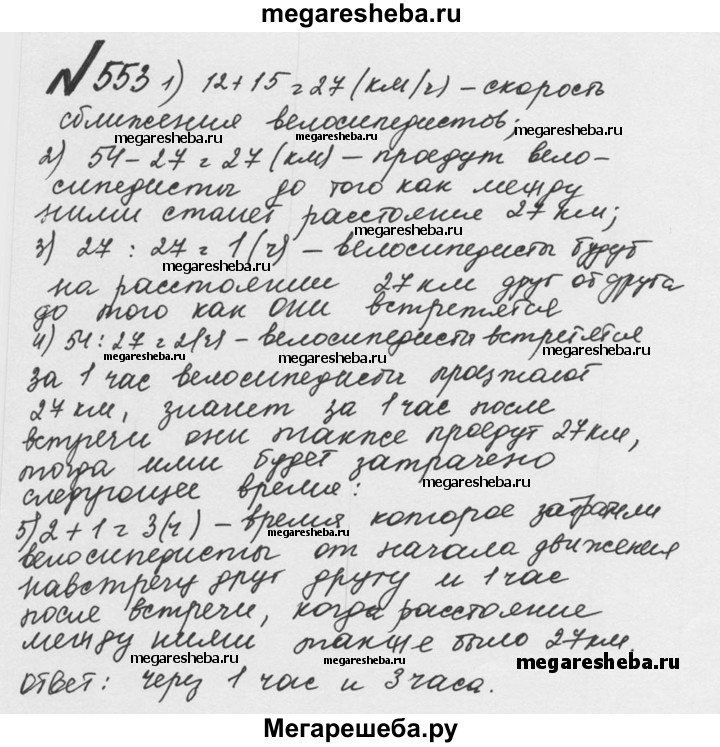 megaresheba.ru
№ 553 1) 12+15=27 (км/ч) – скорость
сближения велосипедистов;
megaresheba.ru megaresheba.ru
2) 54-27=27 (км) – проедут вело-
сипедисты до того как между
megaresheba.ru megaresheba.ru
ними станет расстояние 27 км;
3) 27 : 27 = 1 (ч) – велосипедисты будут
megaresheba.ru
на расстоянии 27 км друг от друга
megaresheba.ru
до того как они встретятся
4) 54:27=2(ч) – велосипедисты встретятся
megaresheba.ru megaresheba.ru
за 1 час велосипедисты проезжают
27 км, значит за 1 час после
встречи они также проедут 27 км,
тогда ими будет затрачено
следующее время:
megaresheba.ru
5) 2+1=3(ч) – время которое затратили
велосипедисты от начала движения
megaresheba.ru
навстречу друг другу и 1 час
после встречи, когда расстояние
между ними также было 27 км.
megaresheba.ru megaresheba.ru megaresheba.ru
Ответ: через 1 час и 3 часа.
Мегарешеба.ру